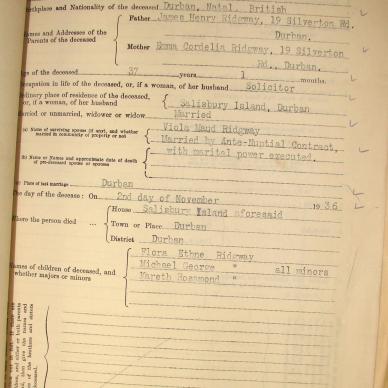 Birthplace and Nationality of the deceased Durban, Natal. British
Father James Henry Ridgway, 19 Silverton Rd.
Durban.
Names and Addresses of the
Parents of the deceased
Mother Emma Cordelia Ridgway, 19 Silverton
Rd., Durban.
Age of the deceased 37 years 1 months.
Occupation in life of the deceased, or, if a woman, of her husband Solicitor
Ordinary place of residence of the deceased,
or, if a woman, of her husband
Salisbury Island, Durban
Married or unmarried, widower or widow Married
(a) Name of surviving spouse (if any), and whether
married in community of property or not
Viola Maud Ridgway
Married by Ante-Nuptial Contract,
with marital power executed.
(b) Name or Names and approximate date of death
of pre-deceased spouse or spouses
(c) Place of last marriage Durban
The day of the decease: On 2nd day of November 1936.
House Salisbury Island aforesaid
Where the person died ... Town or Place Durban
District Durban
Names of children of deceased, and
whether majors or minors
Flora Ethne Ridgway
Michael George " all minors
Kareth Rosamond "